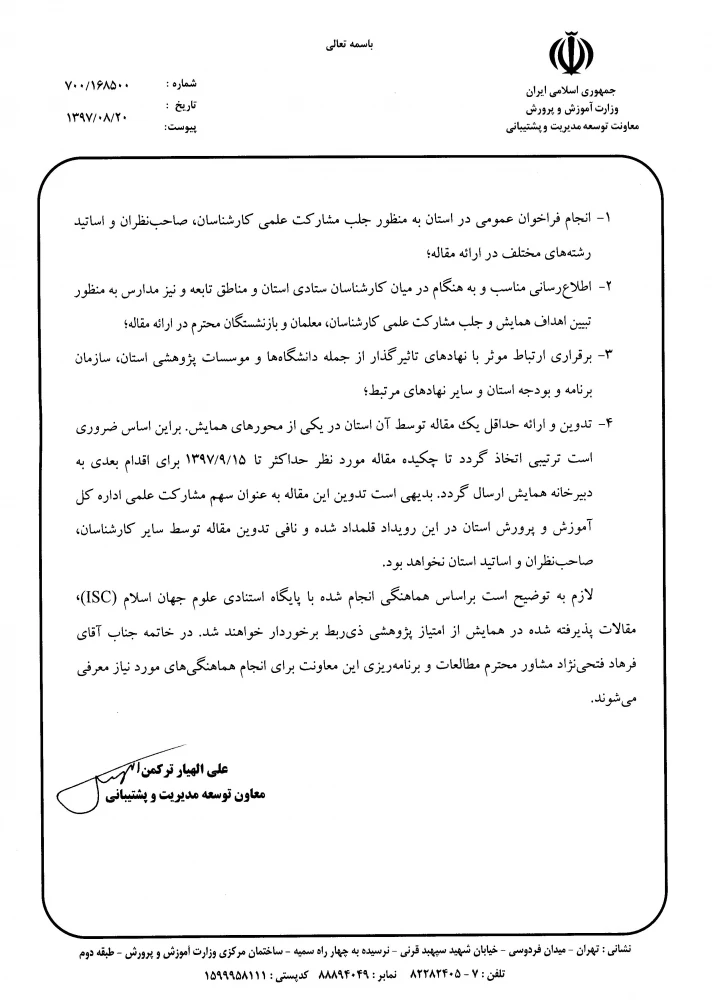 باسمه تعالی
جمهوری اسلامی ایران
وزارت آموزش و پرورش
معاونت توسعه مدیریت و پشتیبانی
شماره : ۷۰۰/۱۶۸۵۰۰
تاریخ : ۱۳۹۷/۰۸/۲۰
پیوست:
۱- انجام فراخوان عمومی در استان به منظور جلب مشارکت علمی کارشناسان، صاحب‌نظران و اساتید
رشته‌های مختلف در ارائه مقاله؛
۲- اطلاع‌رسانی مناسب و به هنگام در میان کارشناسان ستادی استان و مناطق تابعه و نیز مدارس به منظور
تبیین اهداف همایش و جلب مشارکت علمی کارشناسان، معلمان و بازنشستگان محترم در ارائه مقاله؛
۳- برقراری ارتباط موثر با نهادهای تاثیرگذار از جمله دانشگاه‌ها و موسسات پژوهشی استان، سازمان
برنامه و بودجه استان و سایر نهادهای مرتبط؛
۴- تدوین و ارائه حداقل یك مقاله توسط آن استان در یکی از محورهای همایش. براین اساس ضروری
است ترتیبی اتخاذ گردد تا چکیده مقاله مورد نظر حداکثر تا ۱۳۹۷/۹/۱۵ برای اقدام بعدی به
دبیرخانه همایش ارسال گردد. بدیهی است تدوین این مقاله به عنوان سهم مشارکت علمی اداره کل
آموزش و پرورش استان در این رویداد قلمداد شده و نافی تدوین مقاله توسط سایر کارشناسان،
صاحب‌نظران و اساتید استان نخواهد بود.
لازم به توضیح است براساس هماهنگی انجام شده با پایگاه استنادی علوم جهان اسلام (ISC)،
مقالات پذیرفته شده در همایش از امتیاز پژوهشی ذی‌ربط برخوردار خواهند شد. در خاتمه جناب آقای
فرهاد فتحی‌نژاد مشاور محترم مطالعات و برنامه‌ریزی این معاونت برای انجام هماهنگی‌های مورد نیاز معرفی
می‌شوند.
علی الهیار ترکمن
معاون توسعه مدیریت و پشتیبانی
نشانی : تهران - میدان فردوسی - خیابان شهید سپهبد قرنی - نرسیده به چهار راه سمیه - ساختمان مرکزی وزارت آموزش و پرورش - طبقه دوم
تلفن : ۷ - ۸۲۲۸۲۴۰۵ نمابر : ۸۸۸۹۴۰۴۹ کدپستی : ۱۵۹۹۹۵۸۱۱۱